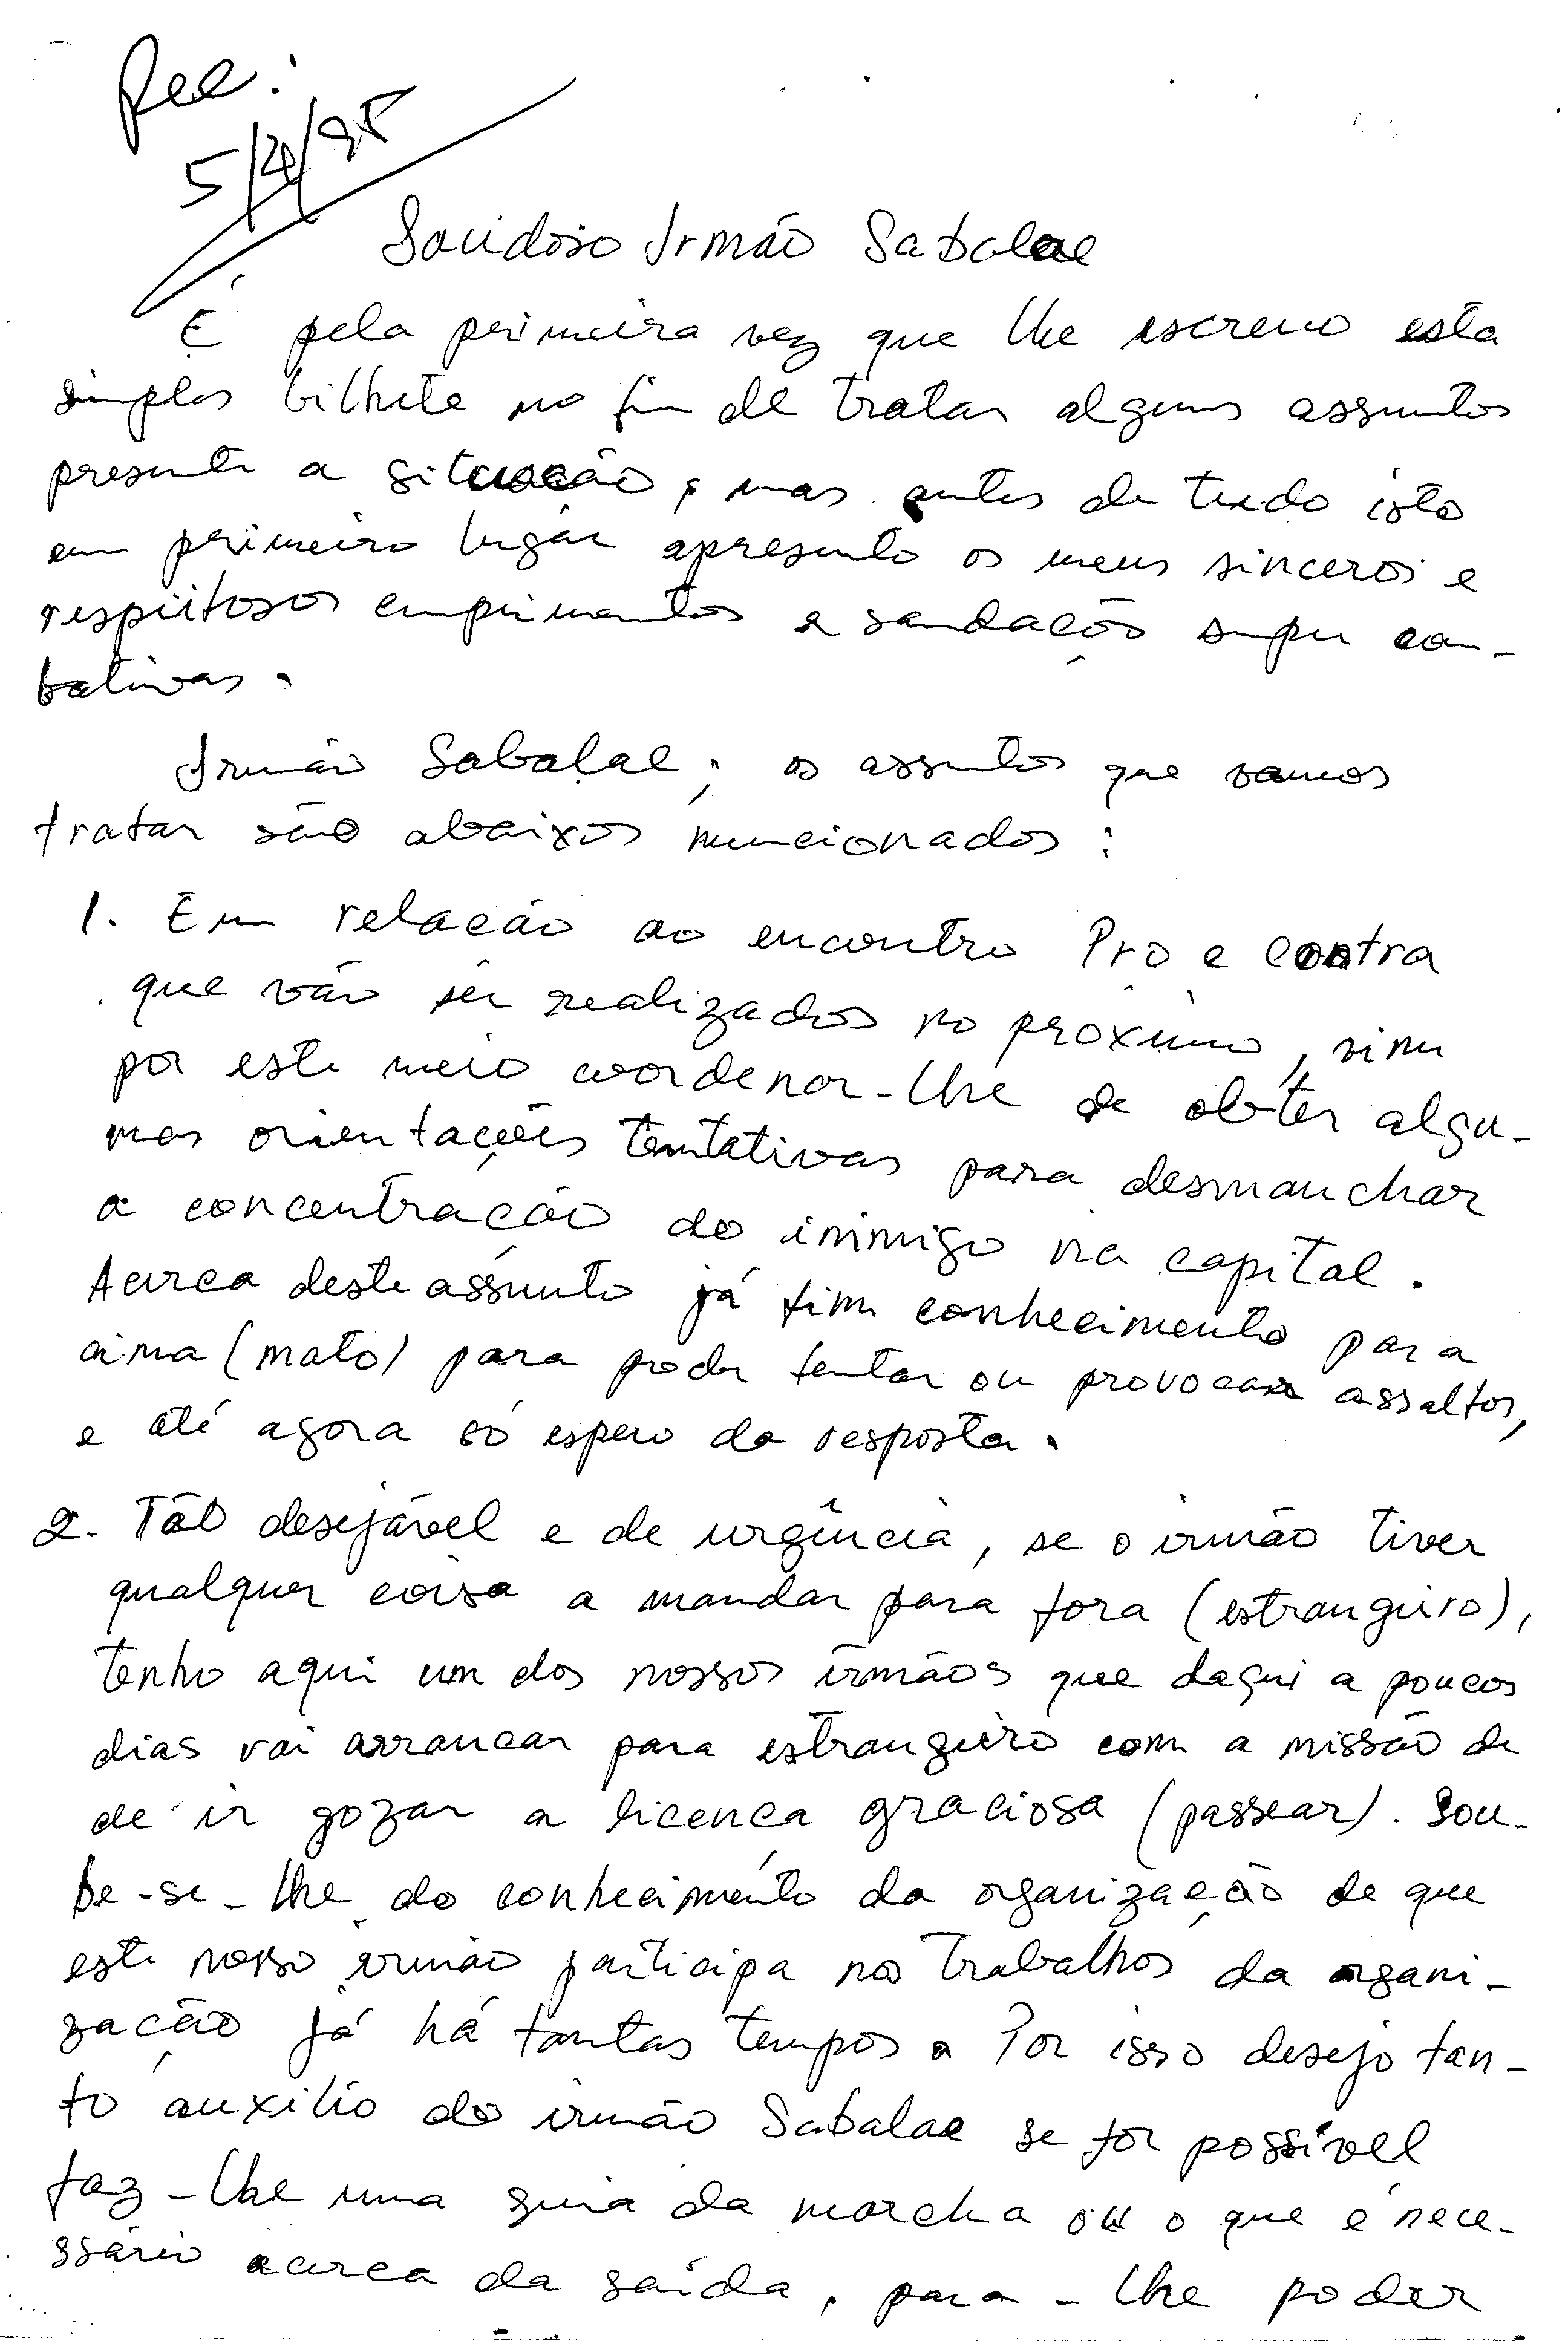 Rec:
5/4/95
Saudoso Irmão Sabalae
É pela perimeira vez que lhe escrevo esta
simples bilhete no fim de tratar alguns assuntos
presente a situação, mas antes de tudo isto
em perimeiro lugar apresento os meus sinceros e
respeitosos cumprimentos e saudações super com-
bativas.
Irmão Sabalae; os assuntos que vamos
tratar são abaixos mencionados:
1. Em relação ao encontro Pro e contra
que vão ser realizados no próximo, vim
por este meio coordenar-lhe de obter algu-
mas orientações tentativas para desmanchar
a concentração do inimigo na capital.
Acerca deste assunto já tim conhecimento para
cima (mato) para poder tentar ou provocar assaltos,
e até agora só espero da resposta.
2. Tão desejável e de urgência, se o irmão tiver
qualquer coisa a mandar para fora (estrangeiro),
tenho aqui um dos nossos irmãos que daqui a poucos
dias vai arrancar para estrangeiro com a missão de
de ir gozar a licença graciosa (passear). Sou-
be-se-lhe do conhecimento da organização de que
este nosso irmão participa nos trabalhos da organi-
zação já há tantas tempos. Por isso desejo tan-
to auxílio do irmão Sabalae se for possível
faz-lhe uma guia da marcha ou o que é nece-
ssário acerca da saída, para-lhe poder